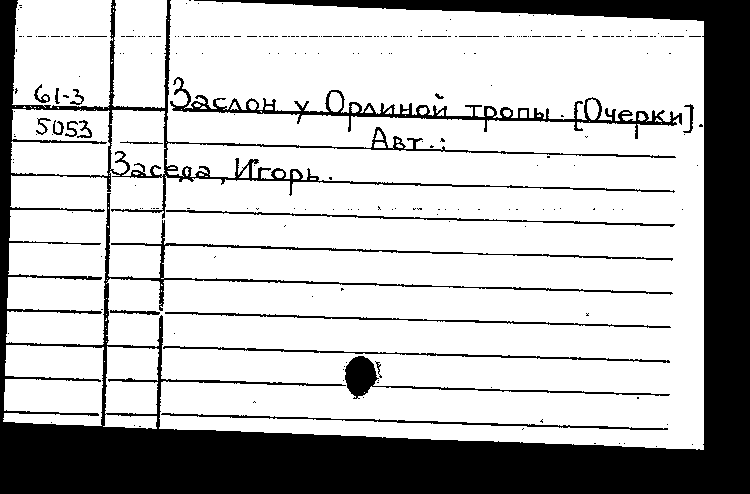 61-3 Заслон у Орлиной тропы. [Очерки].
5053 Авт.:
Заседа, Игорь.